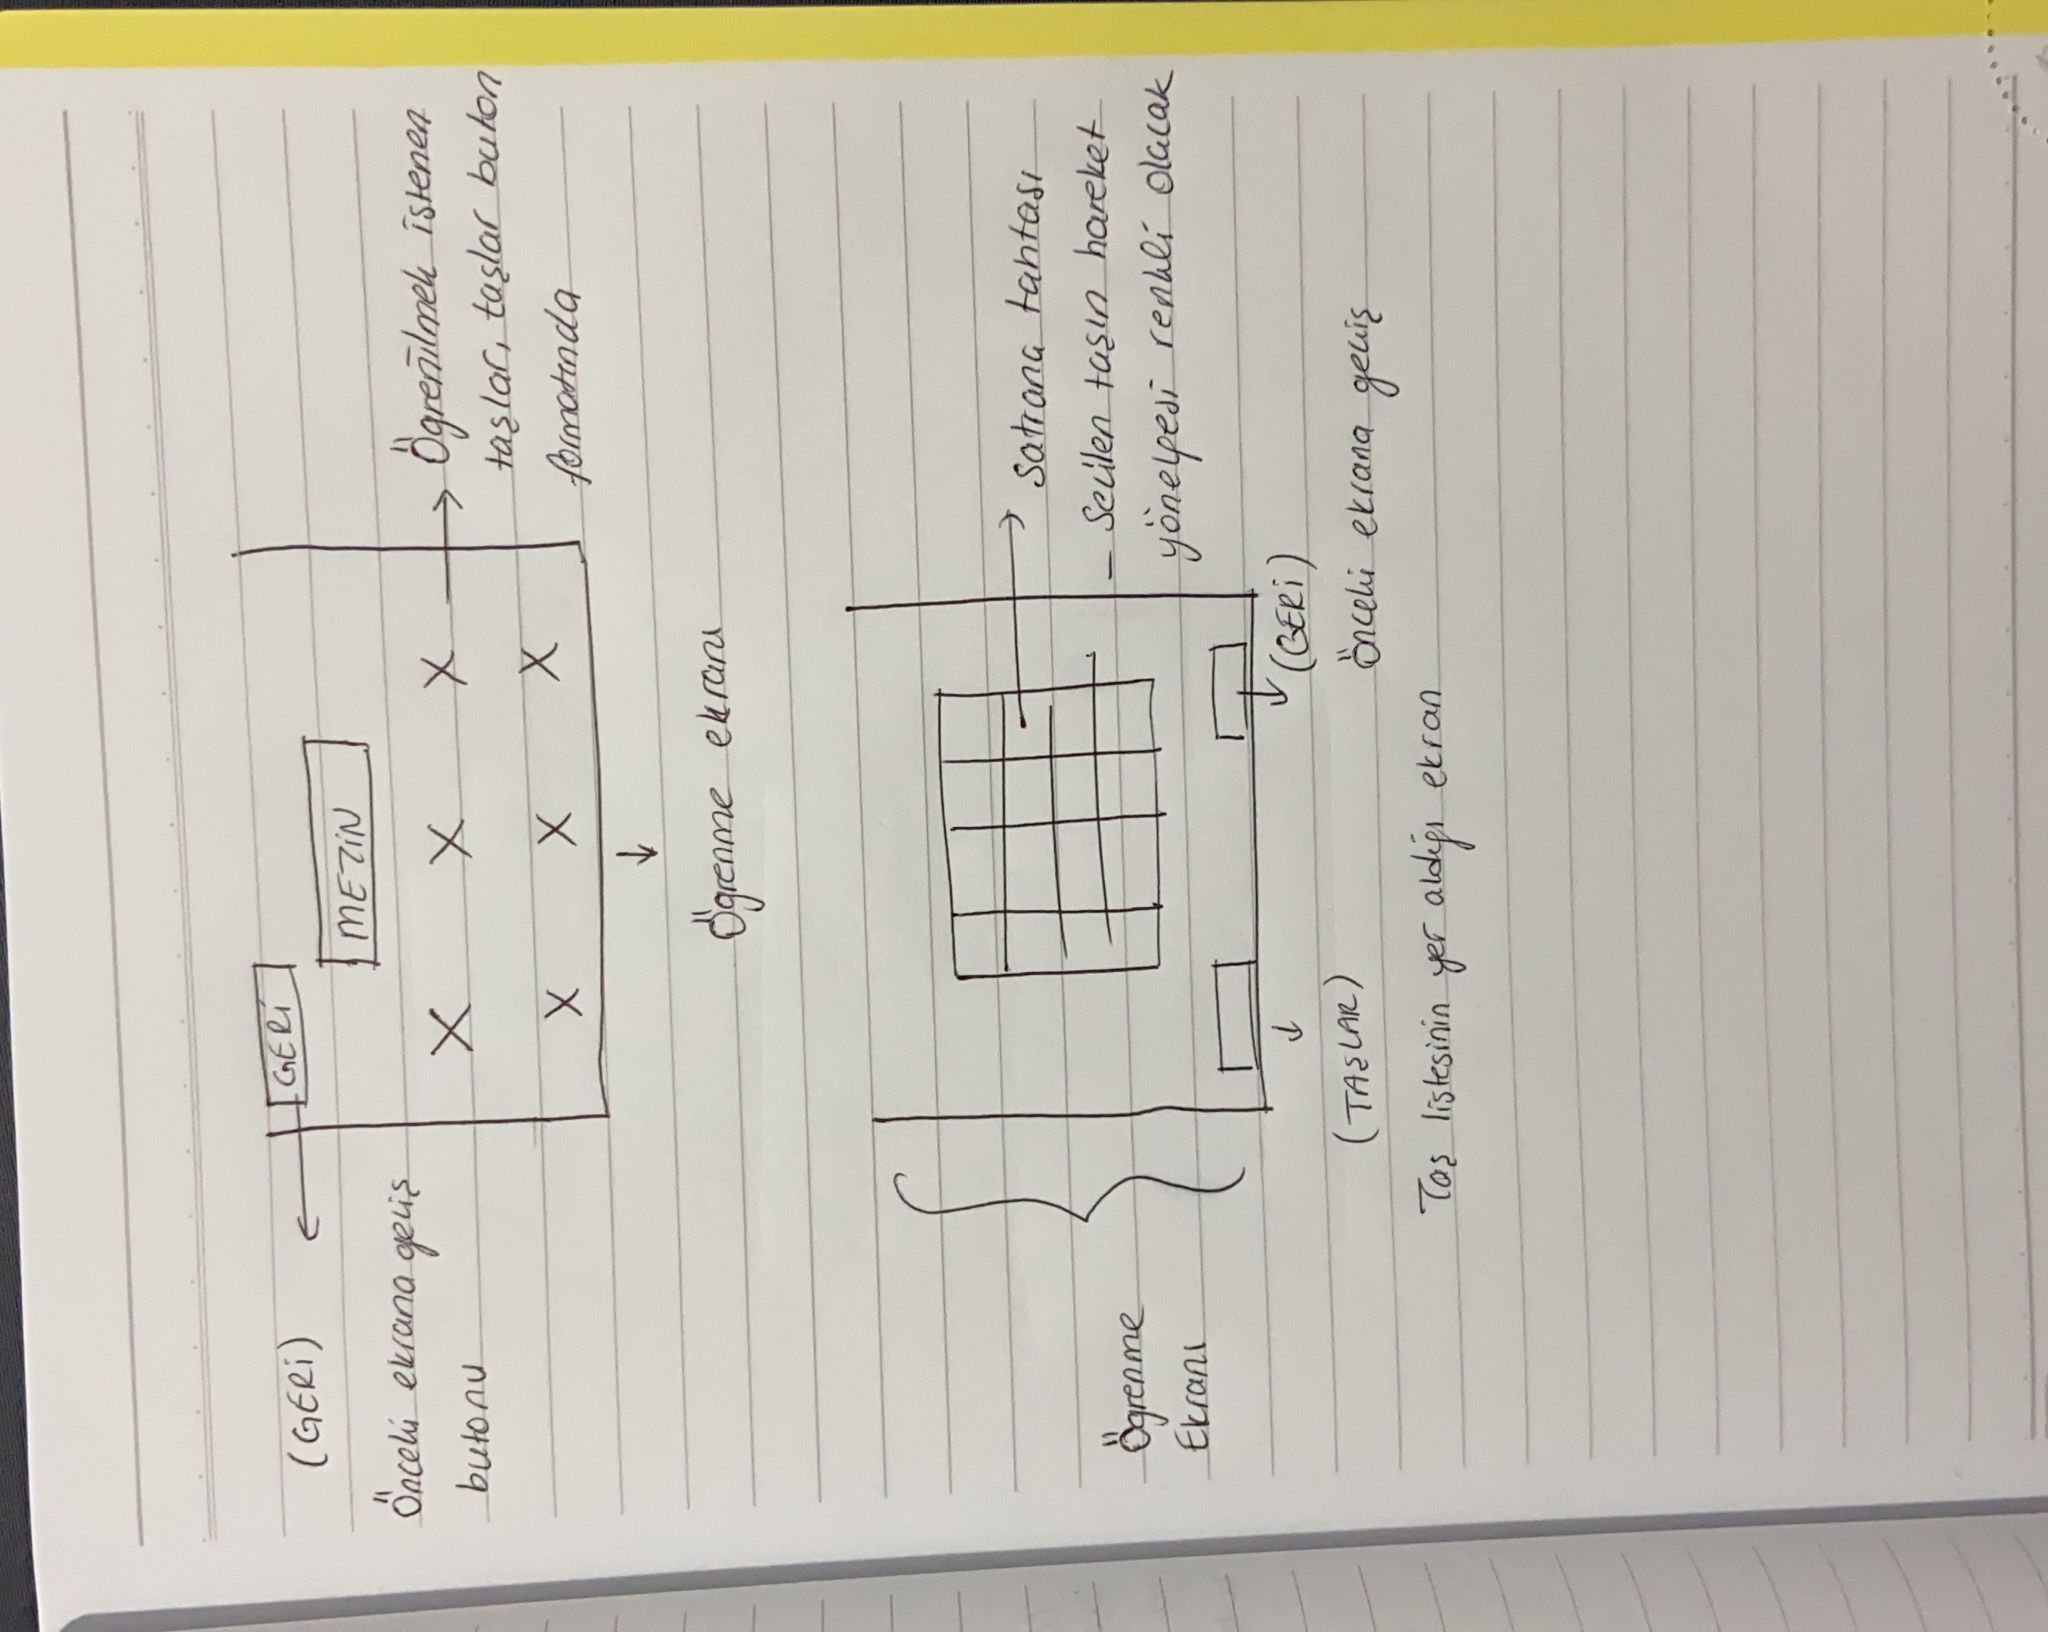 (GERİ)
GERİ
Önceki ekrana geliş
butonu
METİN
X X X
Öğrenilmek istenen
taşlar, taşlar buton
formatında
X X X
Öğrenme ekranı
Satranç tahtası
- Seçilen taşın hareket
yönelgesi renkli olacak
Öğrenme
Ekranı
(TAŞLAR)
Taş listesinin yer aldığı ekran
(GERİ)
Önceki ekrana geliş